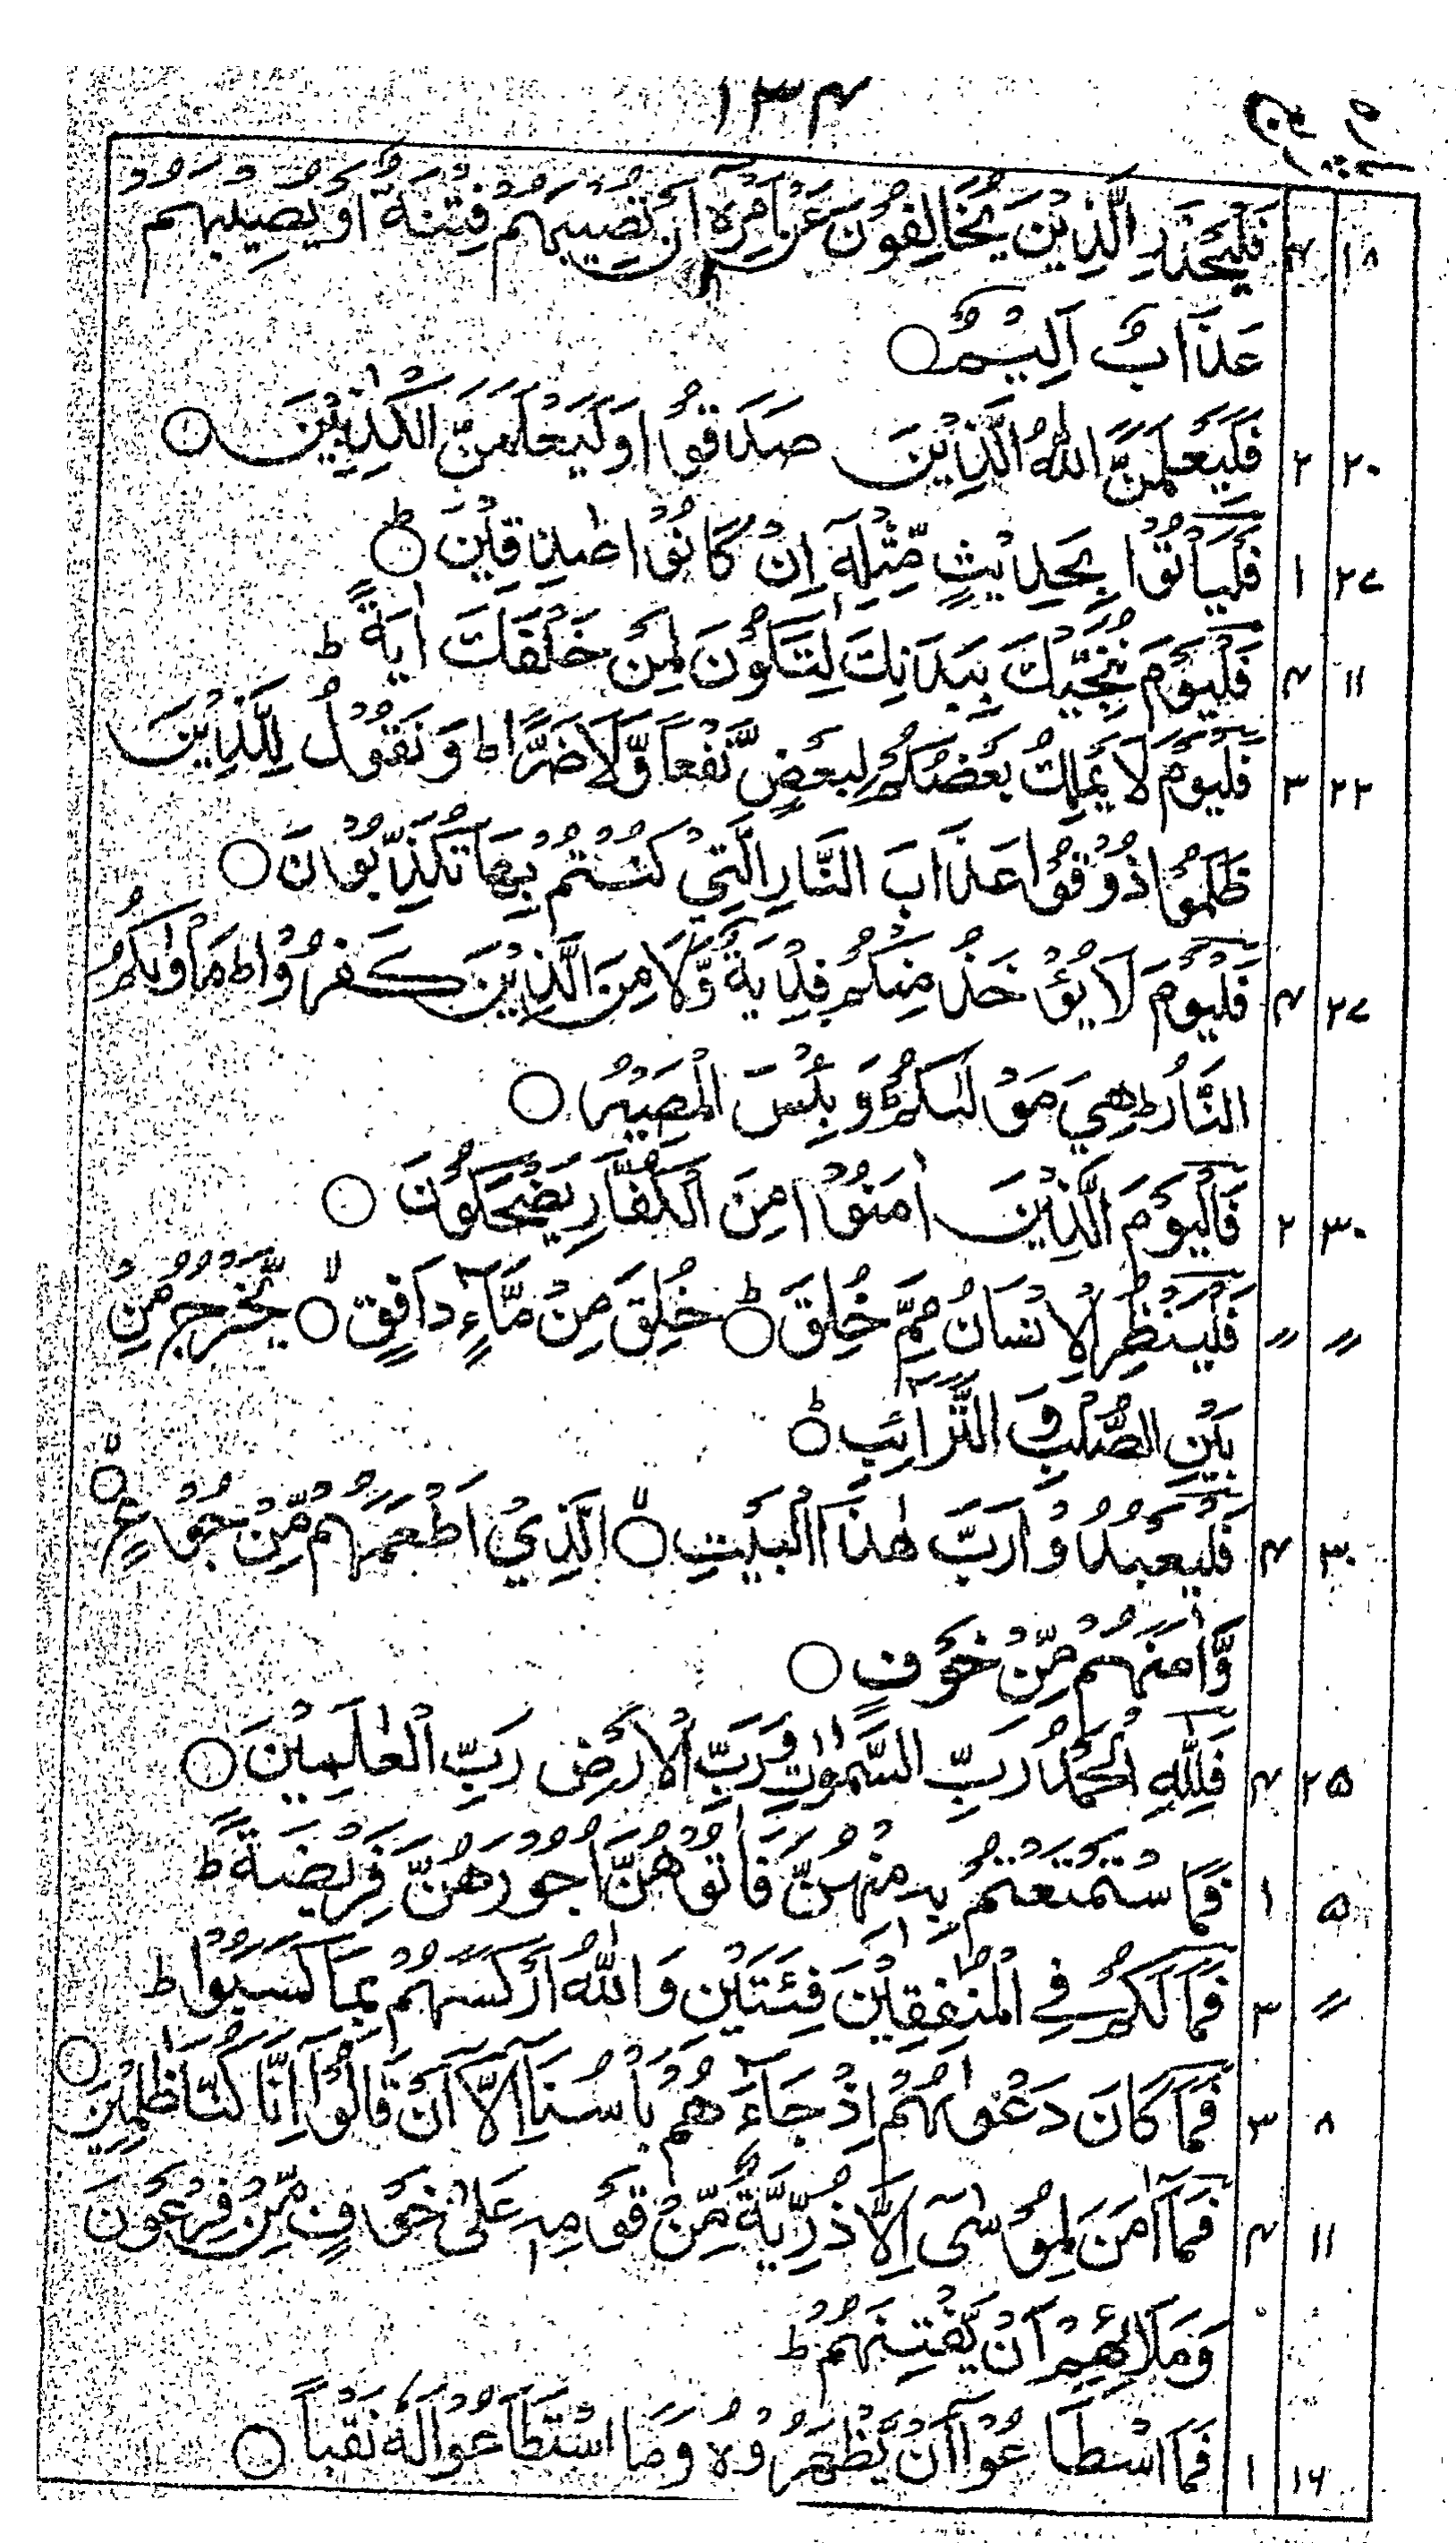 ۱۳۴
۱۸ ۴ فَلْيَحْذَرِ الَّذِيْنَ يُخَالِفُوْنَ عَنْ اَمْرِهٖٓ اَنْ تُصِيْبَهُمْ فِتْنَةٌ اَوْ يُصِيْبَهُمْ
عَذَابٌ اَلِيْمٌ ○
۲۰ ۲ فَلَيَعْلَمَنَّ اللّٰهُ الَّذِيْنَ صَدَقُوْا وَلَيَعْلَمَنَّ الْكٰذِبِيْنَ ○
۲۷ ۱ فَلْيَاْتُوْا بِحَدِيْثٍ مِّثْلِهٖٓ اِنْ كَانُوْا صٰدِقِيْنَ ○ؕ
۱۱ ۴ فَلْيَوْمَ نُنَجِّيْكَ بِبَدَنِكَ لِتَكُوْنَ لِمَنْ خَلْفَكَ اٰيَةً ؕ
۲۲ ۳ فَلْيَوْمَ لَا يَمْلِكُ بَعْضُكُمْ لِبَعْضٍ نَّفْعًا وَّلَا ضَرًّا ؕ وَنَقُوْلُ لِلَّذِيْنَ
ظَلَمُوْا ذُوْقُوْا عَذَابَ النَّارِ الَّتِيْ كُنْتُمْ بِهَا تُكَذِّبُوْنَ ○
۲۷ ۴ فَلْيَوْمَ لَا يُؤْخَذُ مِنْكُمْ فِدْيَةٌ وَّلَا مِنَ الَّذِيْنَ كَفَرُوْا ؕ مَاْوٰىكُمُ
النَّارُ ؕ هِيَ مَوْلٰىكُمْ ؕ وَبِئْسَ الْمَصِيْرُ ○
۳۰ ۲ فَالْيَوْمَ الَّذِيْنَ اٰمَنُوْا مِنَ الْكُفَّارِ يَضْحَكُوْنَ ○
〃 〃 فَلْيَنْظُرِ الْاِنْسَانُ مِمَّ خُلِقَ ○ؕ خُلِقَ مِنْ مَّآءٍ دَافِقٍ ○ۙ يَّخْرُجُ مِنْۢ
بَيْنِ الصُّلْبِ وَ التَّرَآئِبِ ○ؕ
۳۰ ۴ فَلْيَعْبُدُوْا رَبَّ هٰذَا الْبَيْتِ ○ۙ الَّذِيْ اَطْعَمَهُمْ مِّنْ جُوْعٍ ○ۙ
وَّاٰمَنَهُمْ مِّنْ خَوْفٍ ○
۲۵ ۴ فَلِلّٰهِ الْحَمْدُ رَبِّ السَّمٰوٰتِ وَرَبِّ الْاَرْضِ رَبِّ الْعٰلَمِيْنَ ○
۵ ۱ فَمَا اسْتَمْتَعْتُمْ بِهٖ مِنْهُنَّ فَاٰتُوْهُنَّ اُجُوْرَهُنَّ فَرِيْضَةً ؕ
〃 ۳ فَمَا لَكُمْ فِي الْمُنٰفِقِيْنَ فِئَتَيْنِ وَاللّٰهُ اَرْكَسَهُمْ بِمَا كَسَبُوْا ؕ
۸ ۳ فَمَا كَانَ دَعْوٰىهُمْ اِذْ جَآءَهُمْ بَاْسُنَآ اِلَّآ اَنْ قَالُوْٓا اِنَّا كُنَّا ظٰلِمِيْنَ ○
۱۱ ۴ فَمَآ اٰمَنَ لِمُوْسٰٓى اِلَّا ذُرِّيَّةٌ مِّنْ قَوْمِهٖ عَلٰى خَوْفٍ مِّنْ فِرْعَوْنَ
وَمَلَا۟ئِهِمْ اَنْ يَّفْتِنَهُمْ ؕ
۱۶ ۱ فَمَا اسْطَاعُوْٓا اَنْ يَّظْهَرُوْهُ وَمَا اسْتَطَاعُوْا لَهٗ نَقْبًا ○